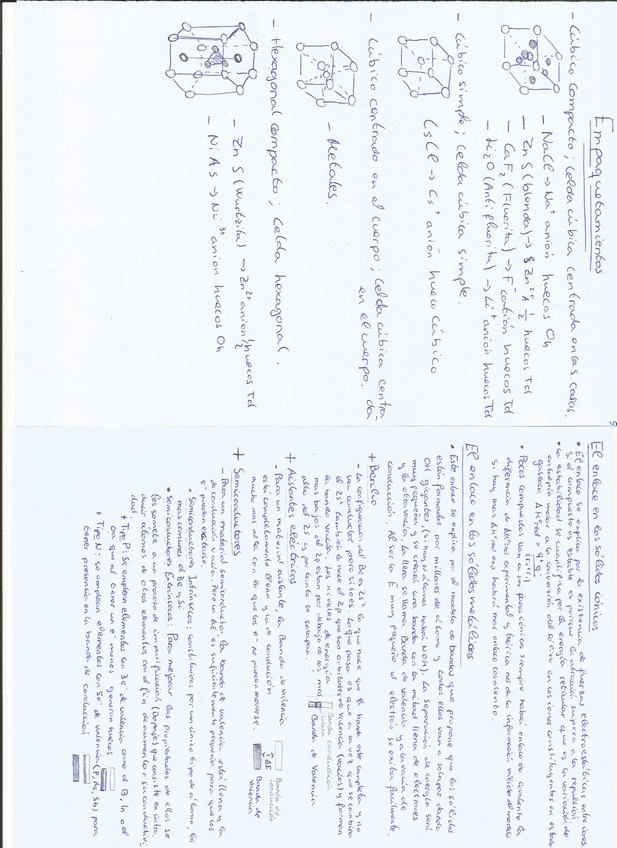 Empaquetamientos
- Cúbico compacto; Celda cúbica centrada en las caras.
- NaCl → Na⁺ anión huecos Oh
- ZnS (blenda) → Zn²⁺ 1/2 huecos Td
- CaF₂ (Fluorita) → F⁻ catión huecos Td
- Li₂O (Antifluorita) → Li⁺ anión huecos Td
- Cúbico simple; Celda cúbica simple.
CsCl → Cs⁺ anión hueco cúbico
- Cúbico centrado en el cuerpo; Celda cúbica centra-
da en el cuerpo.
- Metales.
- Hexagonal compacto; Celda hexagonal.
- ZnS (Wurtzita) → Zn²⁺ anión 1/2 huecos Td
- NiAs → Ni³⁺ anión huecos Oh
El enlace en los sólidos iónicos
• El enlace se explica por la existencia de fuerzas electrostáticas entre iones.
Si el compuesto es estable es porque la atracción supera a la repulsión.
• La estabilidad se cuantifica por la energía reticular que es la variación de
entalpía molar de la conversión del sólido en sus iones constituyentes en estado
gaseoso.
• Pocos compuestos son iónicos siempre habrá enlace covalente. La
diferencia de experimental y teórica nos da la información
si hay más habrá más enlace covalente.
El enlace en los sólidos metálicos
• Este enlace se explica por el modelo de bandas que propone que los sólidos
están formados por millones de átomos y todos ellos van a solapar dando
OM gigantes (si hay N átomos habrá N OM). La separación de energía será
muy pequeña y se creará una banda con la mitad llena de electrones
y la otra vacía. La llena se llama Banda de valencia y la vacía de
conducción. Al ser la E muy pequeña el electrón se excita fácilmente.
+ Berilio
- La configuración del Be es lo que hace que la banda esté completa y no
sea conductor, pero sí lo es. Lo que pasa es que a la vez que se combina
el 2s² también lo hace el 2p que da orbitales (vacíos) y forman
la banda vacía. Los niveles de energía
más bajos del 2p están por debajo de los más
altos del 2s y por tanto se solapan.
Banda conducción
Banda de Valencia
+ Aislantes eléctricos
- Para un material aislante la Banda de valencia
está completamente llena y la de conducción
mucho más alta con lo que los e⁻ no pueden moverse.
Banda de conducción
ΔE
Banda de valencia
+ Semiconductores
- Para un material semiconductor, la banda de valencia está llena y la
de conducción vacía. Pero la ΔE es suficientemente pequeña para que los
e⁻ puedan excitarse.
• Semiconductores Intrínsecos: constituidos por un único tipo de átomo, los
más comunes el Ge y Si
• Semiconductores Extrínsecos: Para mejorar las propiedades de ellos se
les somete a un proceso de impurificación (Dopaje) que consiste en intro-
ducir átomos de otros elementos con el fin de aumentar su conductivi-
dad
+ Tipo P: Se emplean elementos con 3e⁻ de valencia como el B, In o el
Ga que al tener un e⁻ menos generan huecos
+ Tipo N: se emplean elementos con 5e⁻ de valencia (P, As, Sb) para
crear presencia en la banda de conducción